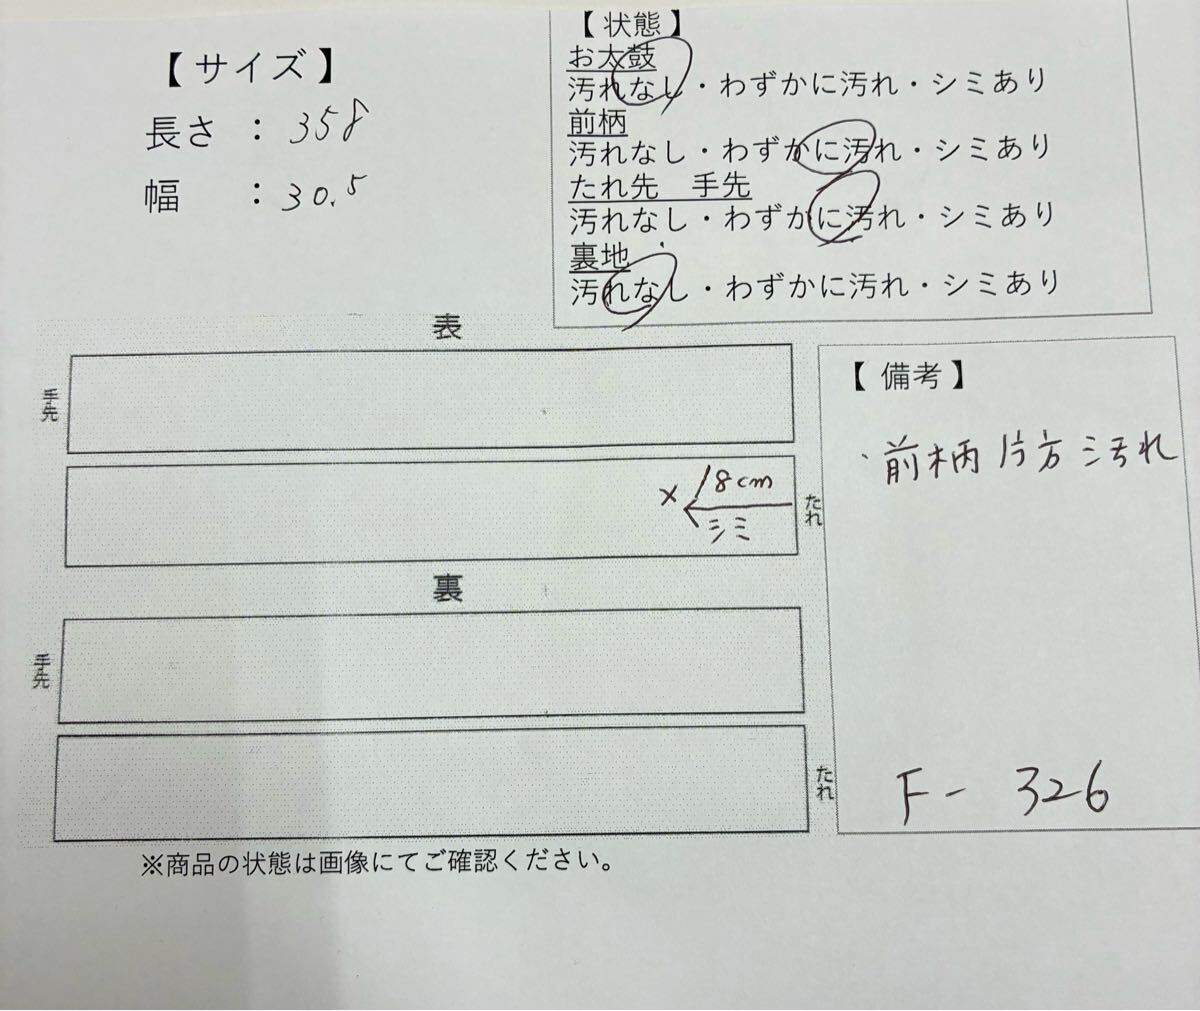 【サイズ】
長さ ： 358
幅 ： 30.5
【 状態 】
お太鼓
汚れなし・わずかに汚れ・シミあり
前柄
汚れなし・わずかに汚れ・シミあり
たれ先 手先
汚れなし・わずかに汚れ・シミあり
裏地
汚れなし・わずかに汚れ・シミあり
表
手先
× 18cm
シミ
たれ
裏
手先
たれ
【 備考 】
・前柄 片方 汚れ
F- 326
※商品の状態は画像にてご確認ください。